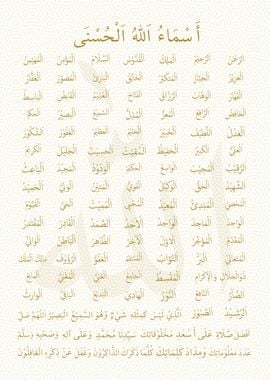 أَسْمَاءُ اللهُ الْحُسْنَى
الرَّحْمَنُ الرَّحِيمُ المَلِكُ القُدُّوسُ السَّلَامُ المُؤْمِنُ المُهَيْمِنُ
العَزِيزُ الجَبَّارُ المُتَكَبِّرُ الخَالِقُ البَارِئُ المُصَوِّرُ الغَفَّارُ
القَهَّارُ الوَهَّابُ الرَّزَّاقُ الفَتَّاحُ العَلِيمُ القَابِضُ البَاسِطُ
الخَافِضُ الرَّافِعُ المُعِزُّ المُذِلُّ السَّمِيعُ البَصِيرُ الحَكَمُ
العَدْلُ اللَّطِيفُ الخَبِيرُ الحَلِيمُ العَظِيمُ الغَفُورُ الشَّكُورُ
العَلِيُّ الكَبِيرُ الحَفِيظُ المُقِيتُ الحَسِيبُ الجَلِيلُ الكَرِيمُ
الرَّقِيبُ المُجِيبُ الوَاسِعُ الحَكِيمُ الوَدُودُ المَجِيدُ البَاعِثُ
الشَّهِيدُ الحَقُّ الوَكِيلُ القَوِيُّ المَتِينُ الوَلِيُّ الحَمِيدُ
المُحْصِي المُبْدِئُ المُعِيدُ المُحْيِي المُمِيتُ الحَيُّ القَيُّومُ
الوَاجِدُ المَاجِدُ الوَاحِدُ الأَحَدُ الصَّمَدُ القَادِرُ المُقْتَدِرُ
المُقَدِّمُ المُؤَخِّرُ الأَوَّلُ الآخِرُ الظَّاهِرُ البَاطِنُ الوَالِي
المُتَعَالِي البَرُّ التَّوَّابُ المُنْتَقِمُ العَفُوُّ الرَّؤُوفُ مَالِكُ المُلْكِ
ذُو الجَلَالِ وَالإِكْرَامِ المُقْسِطُ الجَامِعُ الغَنِيُّ المُغْنِي المَانِعُ
الضَّارُّ النَّافِعُ النُّورُ الهَادِي البَدِيعُ البَاقِي الوَارِثُ
الرَّشِيدُ الصَّبُورُ الَّذِي لَيْسَ كَمِثْلِهِ شَيْءٌ وَهُوَ السَّمِيعُ البَصِيرُ اللَّهُمَّ صَلِّ
أَفْضَلَ صَلَاةٍ عَلَى أَسْعَدِ مَخْلُوقَاتِكَ سَيِّدِنَا مُحَمَّدٍ وَعَلَى آلِهِ وَصَحْبِهِ وَسَلِّمْ
عَدَدَ مَعْلُومَاتِكَ وَمِدَادَ كَلِمَاتِكَ كُلَّمَا ذَكَرَكَ الذَّاكِرُونَ وَغَفَلَ عَنْ ذِكْرِهِ الغَافِلُونَ
الله